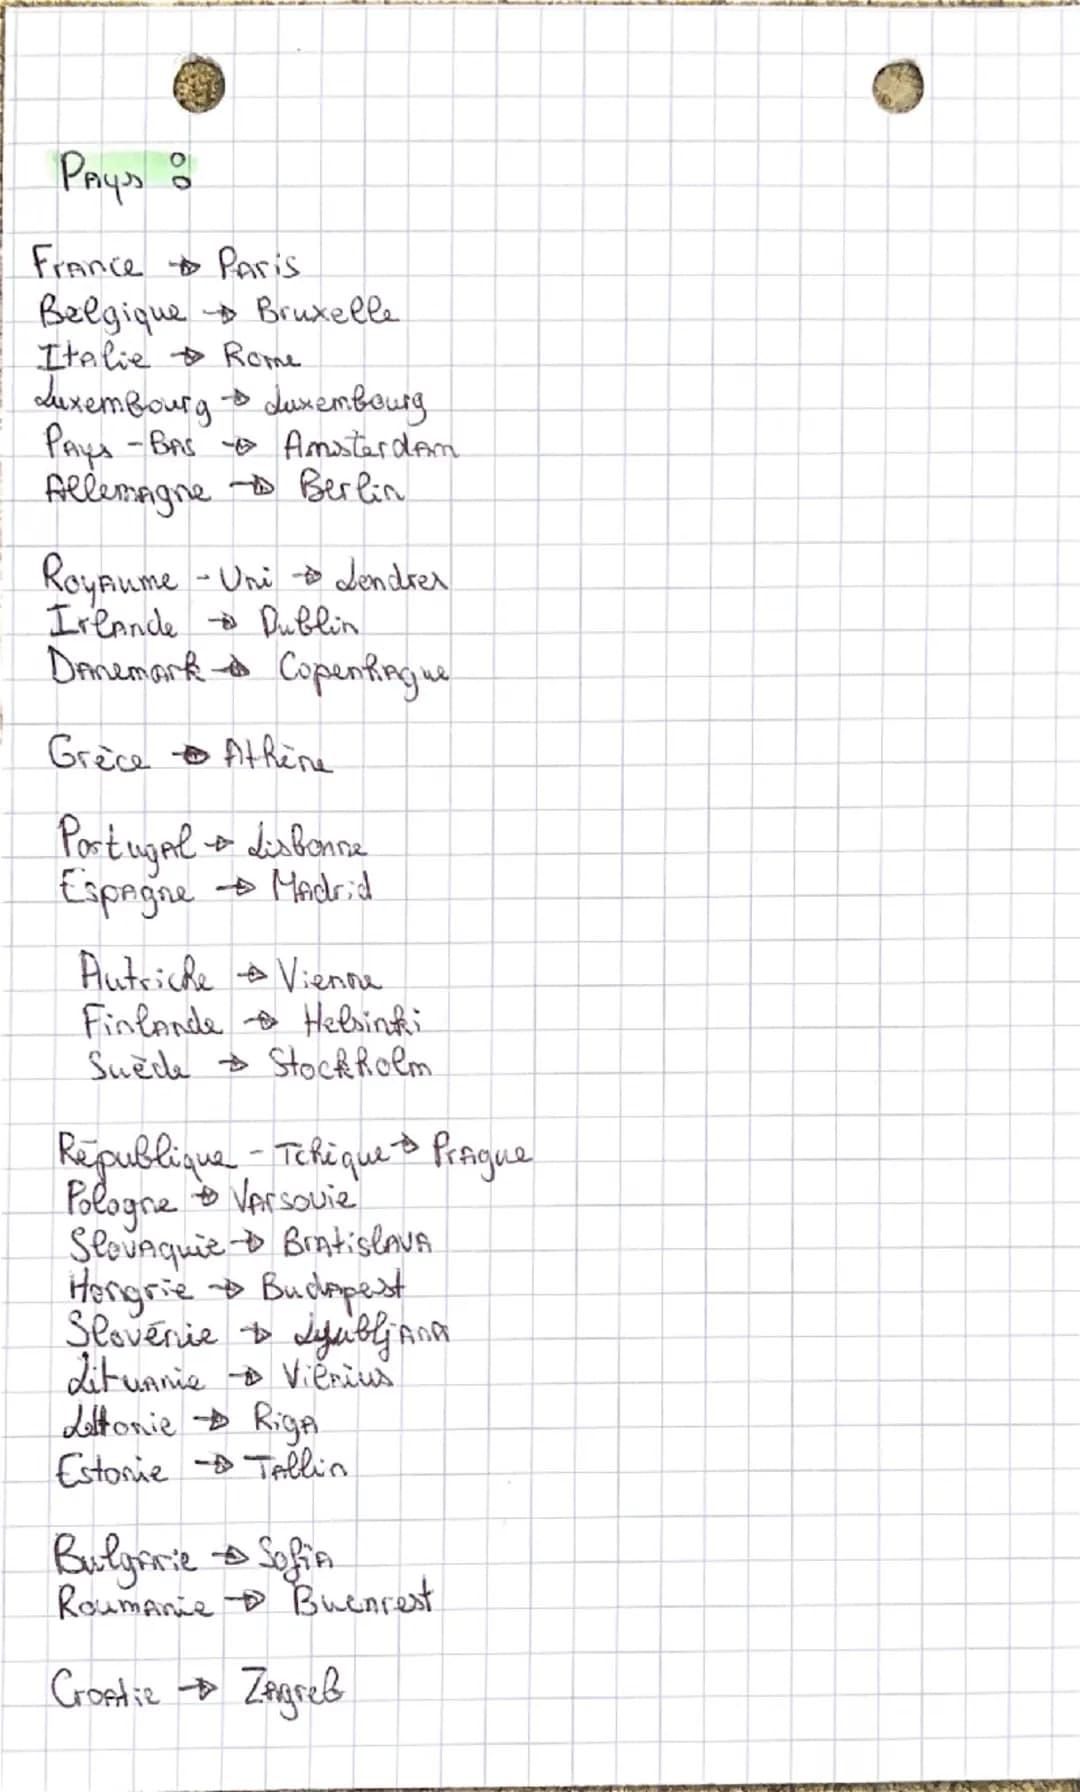 Pays :
France → Paris
Belgique → Bruxelle
Italie → Rome
Luxembourg → Luxembourg
Pays-Bas → Amsterdam
Allemagne → Berlin
Royaume-Uni → Londres
Irlande → Dublin
Danemark → Copenhague
Grèce → Athène
Portugal → Lisbonne
Espagne → Madrid
Autriche → Vienne
Finlande → Helsinki
Suède → Stockholm
République-Tchique → Prague
Pologne → Varsovie
Slovaquie → Bratislava
Hongrie → Budapest
Slovénie → Lyubljana
Lituanie → Vilnius
Lettonie → Riga
Estonie → Tallin
Bulgarie → Sofia
Roumanie → Bucarest
Croatie → Zagreb